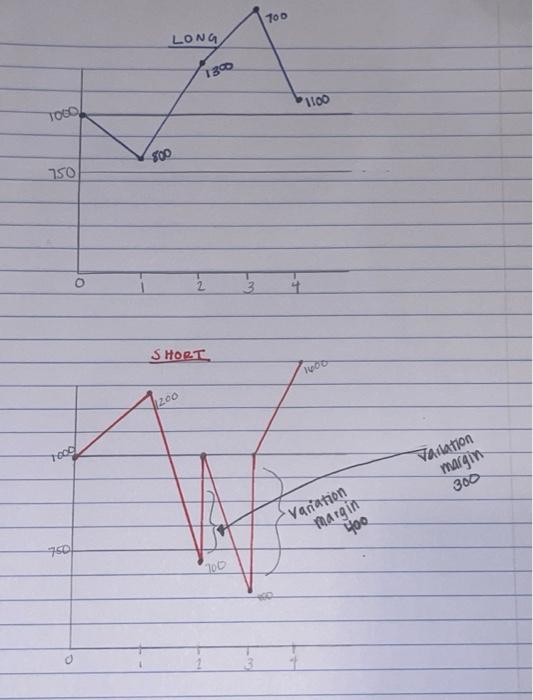 LONG
700
1300
1000
1100
800
750
0 1 2 3 4
SHORT
1600
1200
1000
Variation
margin
300
Variation
margin
400
750
700
0 1 2 3 4